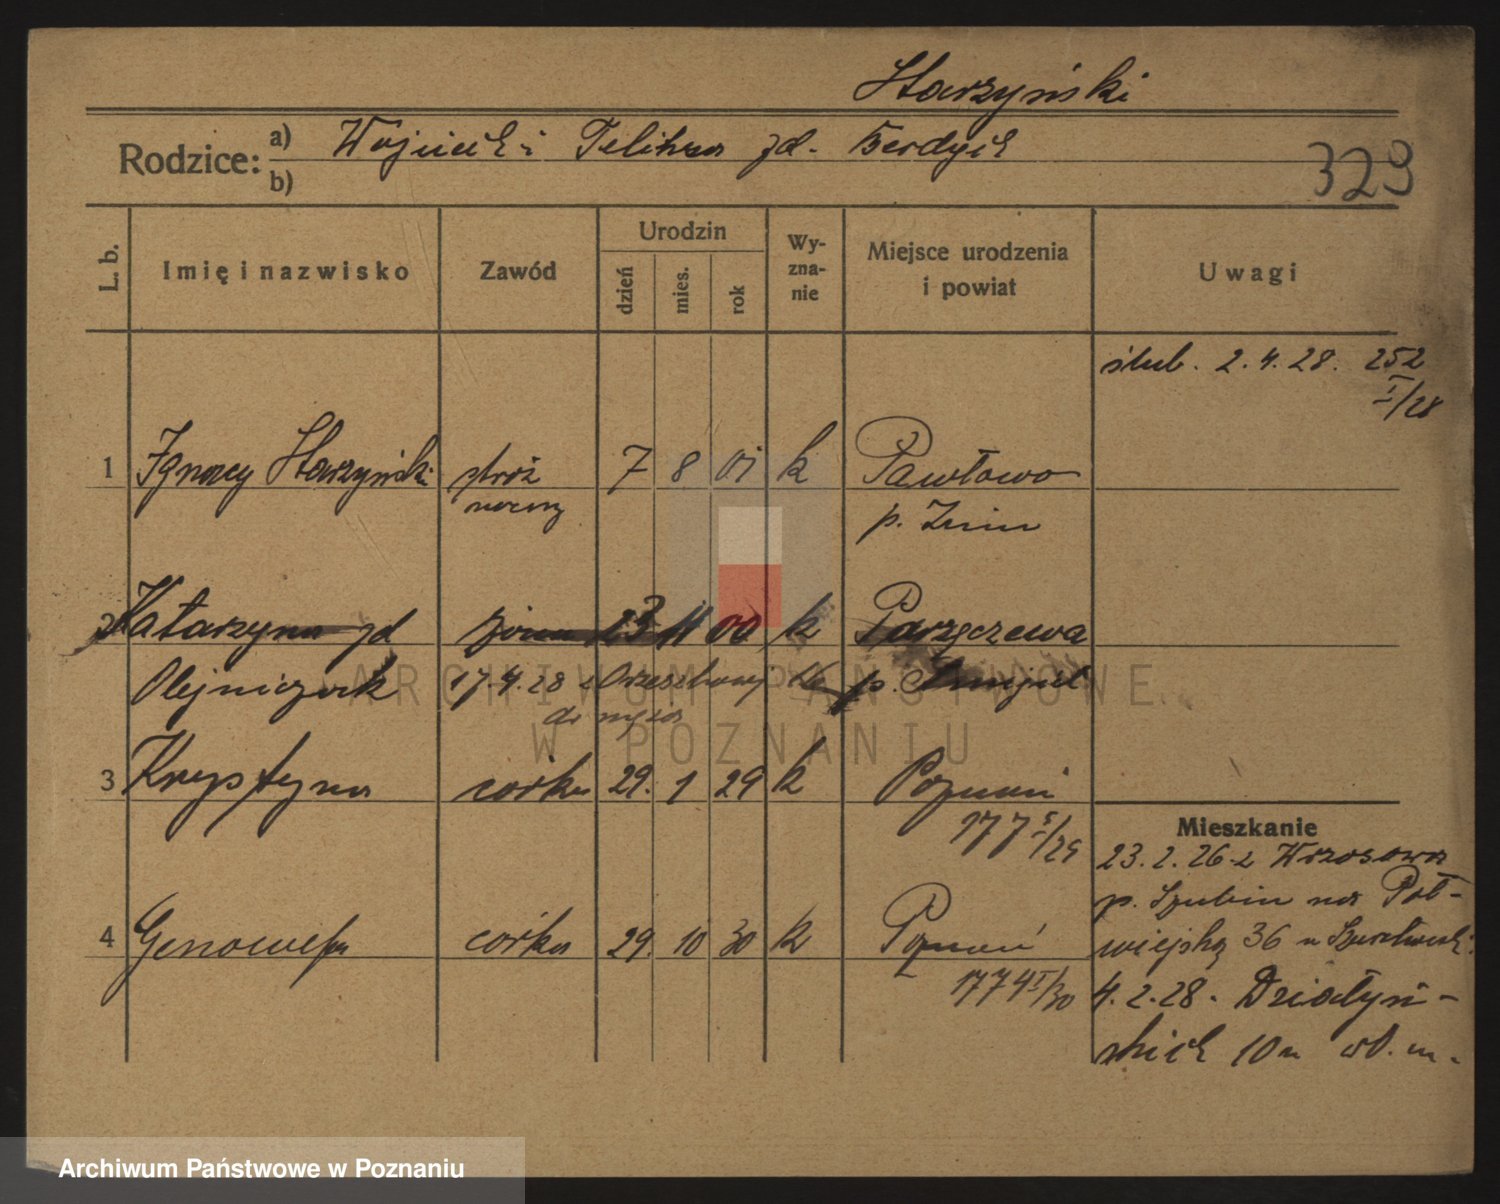 Starzyński
Rodzice: a) Wojciech i Feliksa zd. Berdych
b)
329
L. b. Imię i nazwisko Zawód Urodzin dzień mies. rok Wy-zna-nie Miejsce urodzenia i powiat Uwagi
ślub. 2.4.28. 252
I/28
1 Ignacy Starzyński stróż 7 8 01 k Pawłowo
nocny p. Żnin
2 Katarzyna zd żona 23 11 00 k Parzęczewa
Olejniczak 17.4.28 z Orzeszkowej 26 p. Śmigiel
do męża
3 Krystyna córka 29. 1 29 k Poznań
177 I/29
Mieszkanie
23.2.26 z Wrzosowa
p. Szubin na Pół-
4 Genowefa córka 29. 10 30 k Poznań
wiejską 36 u
1774 I/30
4.2.28. Działyń-
skich 10 u wł. m.
ARCHIWUM PAŃSTWOWE
W POZNANIU
Archiwum Państwowe w Poznaniu